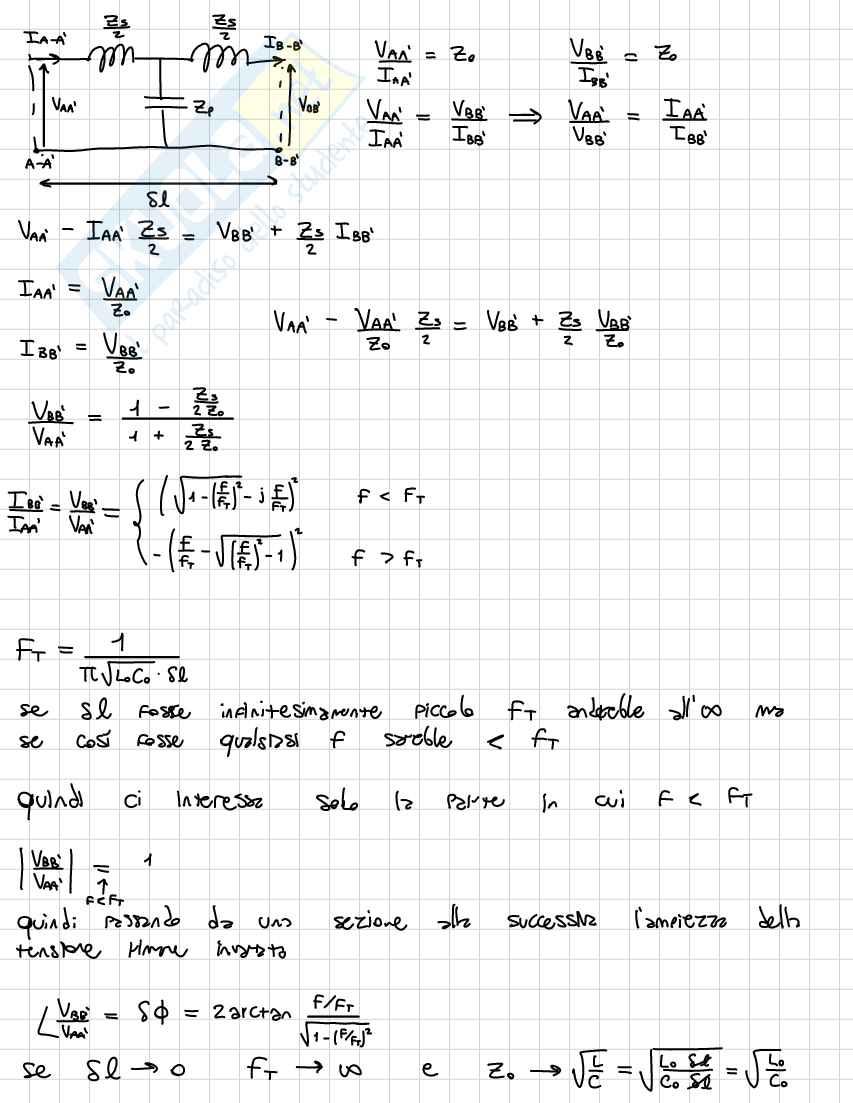 Zs/2 Zs/2
I_A-A' I_B-B' V_AA'/I_AA' = Z₀ V_BB'/I_BB' = Z₀
V_AA' Zp V_BB' V_AA'/I_AA' = V_BB'/I_BB' ⟹ V_AA'/V_BB' = I_AA'/I_BB'
A-A' B-B'
δl
V_AA' - I_AA' Zs/2 = V_BB' + Zs/2 I_BB'
I_AA' = V_AA'/Z₀
V_AA' - V_AA'/Z₀ Zs/2 = V_BB' + Zs/2 V_BB'/Z₀
I_BB' = V_BB'/Z₀
V_BB'/V_AA' = (1 - Zs/2Z₀)/(1 + Zs/2Z₀)
I_BB'/I_AA' = V_BB'/V_AA' = { (√(1-(f/f_T)²) - j f/f_T)² f < f_T
-(f/f_T - √((f/f_T)² - 1))² f > f_T
F_T = 1/(π√(L₀C₀) · δl)
se δl fosse infinitesimamente piccolo f_T andrebbe all'∞ ma
se così fosse qualsiasi f sarebbe < f_T
quindi ci interessa solo la parte in cui f < f_T
|V_BB'/V_AA'| = 1
↑
f<f_T
quindi passando da una sezione alla successiva l'ampiezza della
tensione rimane invariata
∠V_BB'/V_AA' = δϕ = 2 arctan (f/f_T)/√(1-(f/f_T)²)
se δl → 0 f_T → ∞ e Z₀ → √(L/C) = √(L₀ δl/C₀ δl) = √(L₀/C₀)
SKUOLA.net
il paradiso dello studente